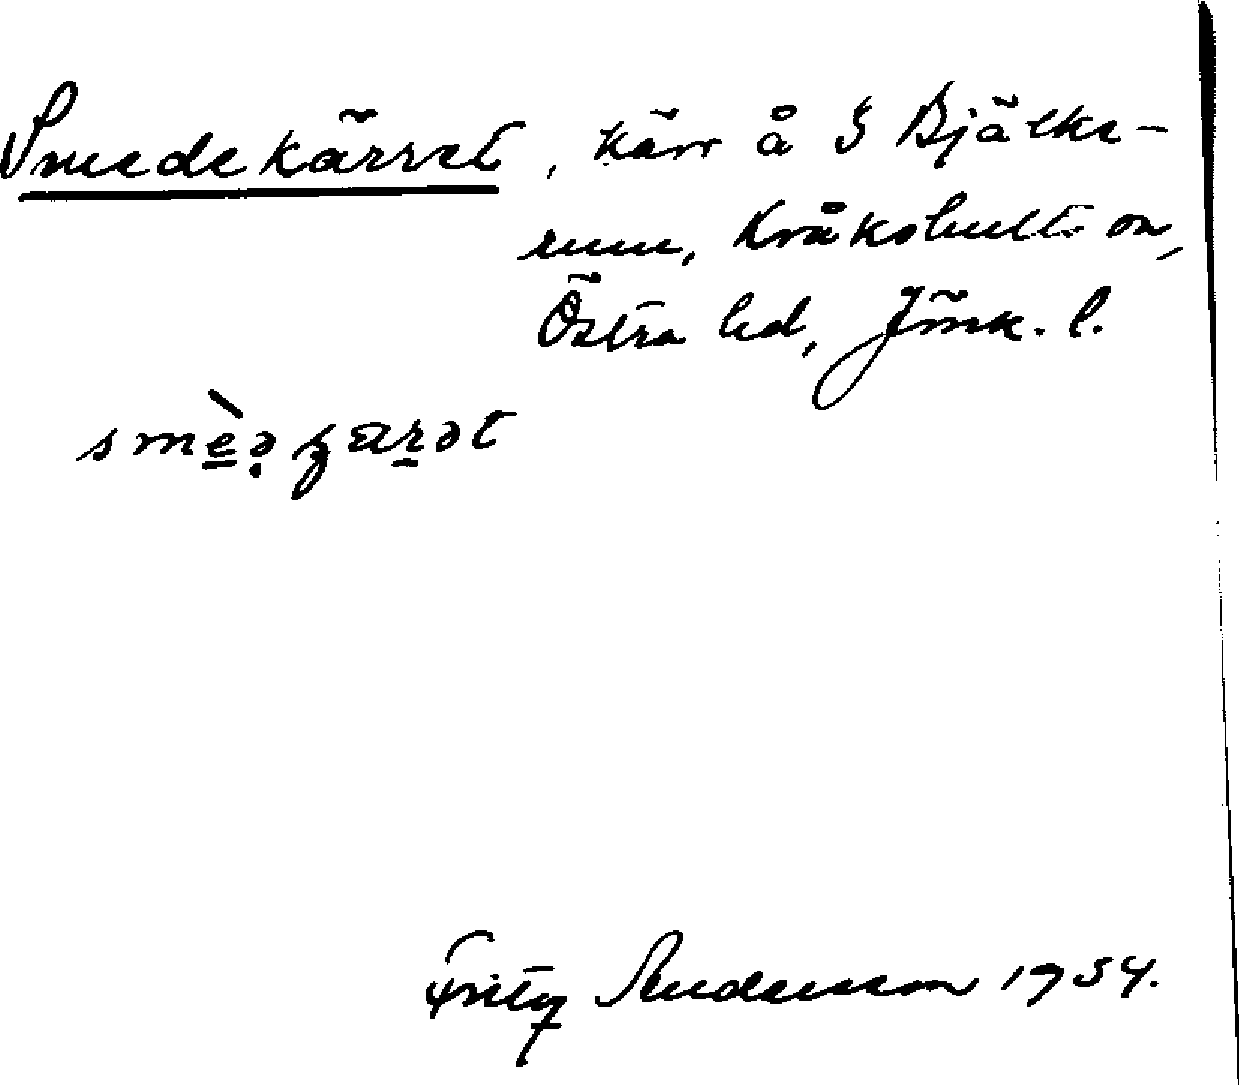 Smedekärret, kärr å S Bjälke-
rum, Kråkshults sn,
Östra hd, Jönk. l.
smèə̣ ʒarət
Fritz Andersson 1934.